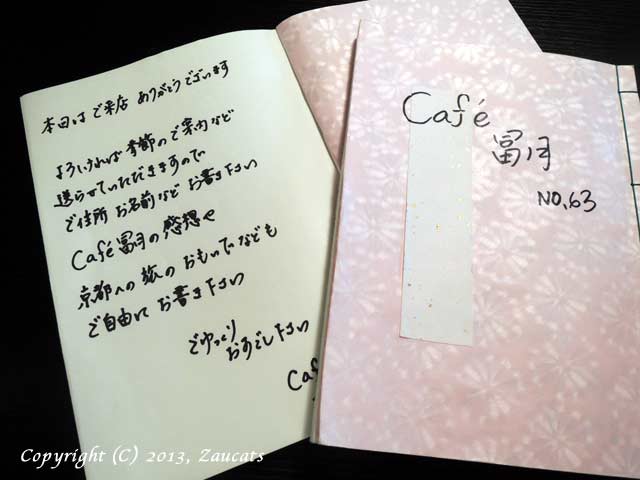 本日は ご来店 ありがとうございます
よろしければ 季節の ご案内など
送らせていただきますので
ご住所 お名前など お書き下さい
Café 冨月の 感想や
京都への 旅の おもいでなども
ご自由に お書き下さい
ごゆっくり
おすごし下さい
Café
冨月
NO,63
Copyright (C) 2013, Zaucats